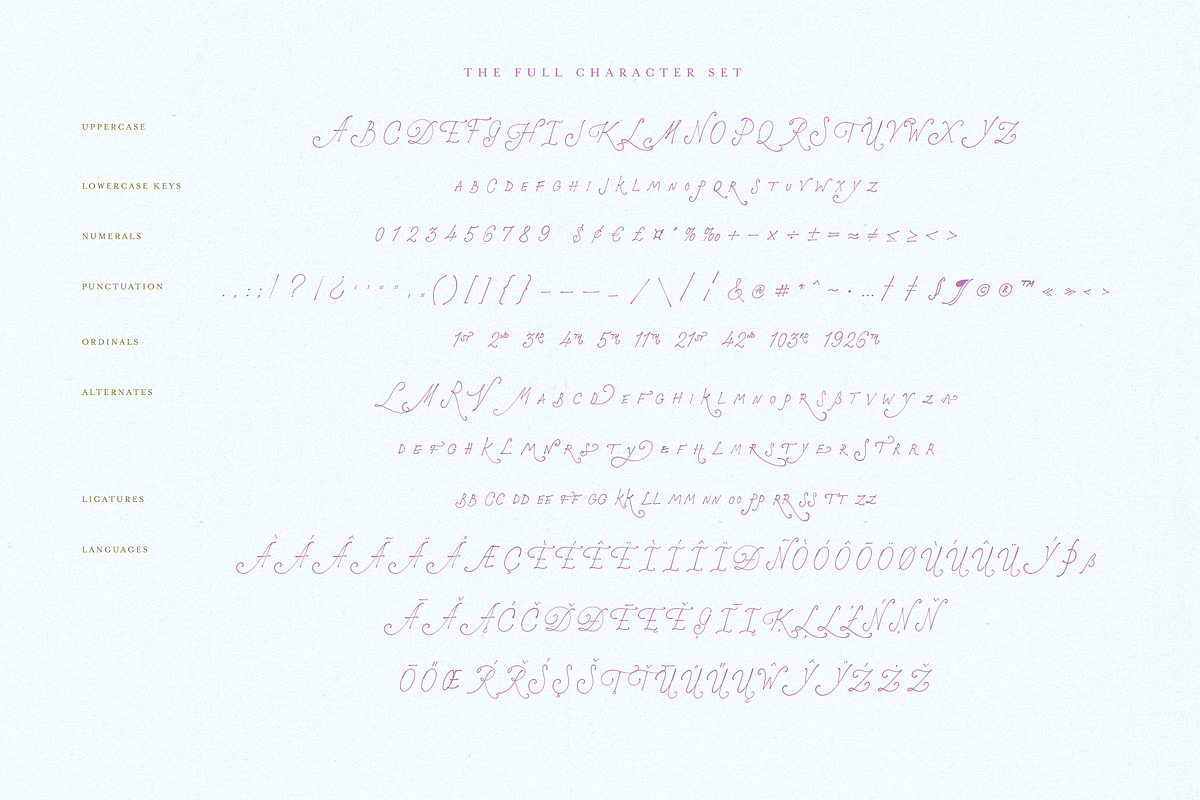 THE FULL CHARACTER SET
UPPERCASE
A B C D E F G H I J K L M N O P Q R S T U V W X Y Z
LOWERCASE KEYS
A B C D E F G H I J K L M N O P Q R S T U V W X Y Z
NUMERALS
0 1 2 3 4 5 6 7 8 9 $ ¢ € £ ¤ ° % ‰ + − × ÷ ± = ≈ ≠ ≤ ≥ < >
PUNCTUATION
. , : ; ! ? | ¿ ' ' ' " " , „ ( ) [ ] { } - – — _ / \ | ¦ & @ # * ^ ~ · … † ‡ § ¶ © ® ™ « » ‹ ›
ORDINALS
1ST 2ND 3RD 4TH 5TH 11TH 21ST 42ND 103RD 1926TH
ALTERNATES
L M R V M A B C D E F G H I K L M N O P R S B T V W Y Z A
D E F G H K L M N R S T Y & F H L M R S T Y E R S T R R R
LIGATURES
BB CC DD EE FF GG KK LL MM NN OO PP RR SS TT ZZ
LANGUAGES
À Á Â Ã Ä Å Æ Ç È É Ê Ë Ì Í Î Ï Ð Ñ Ò Ó Ô Õ Ö Ø Ù Ú Û Ü Ý Þ ß
Ā Ă Ą Ć Č Ď Đ Ē Ę Ě Ģ Ī Į Ķ Ļ Ļ Ł Ń Ņ Ň
Ō Ő Œ Ŕ Ř Ś Ş Š Ţ Ť Ū Ů Ű Ų Ŵ Ŷ Ÿ Ź Ż Ž